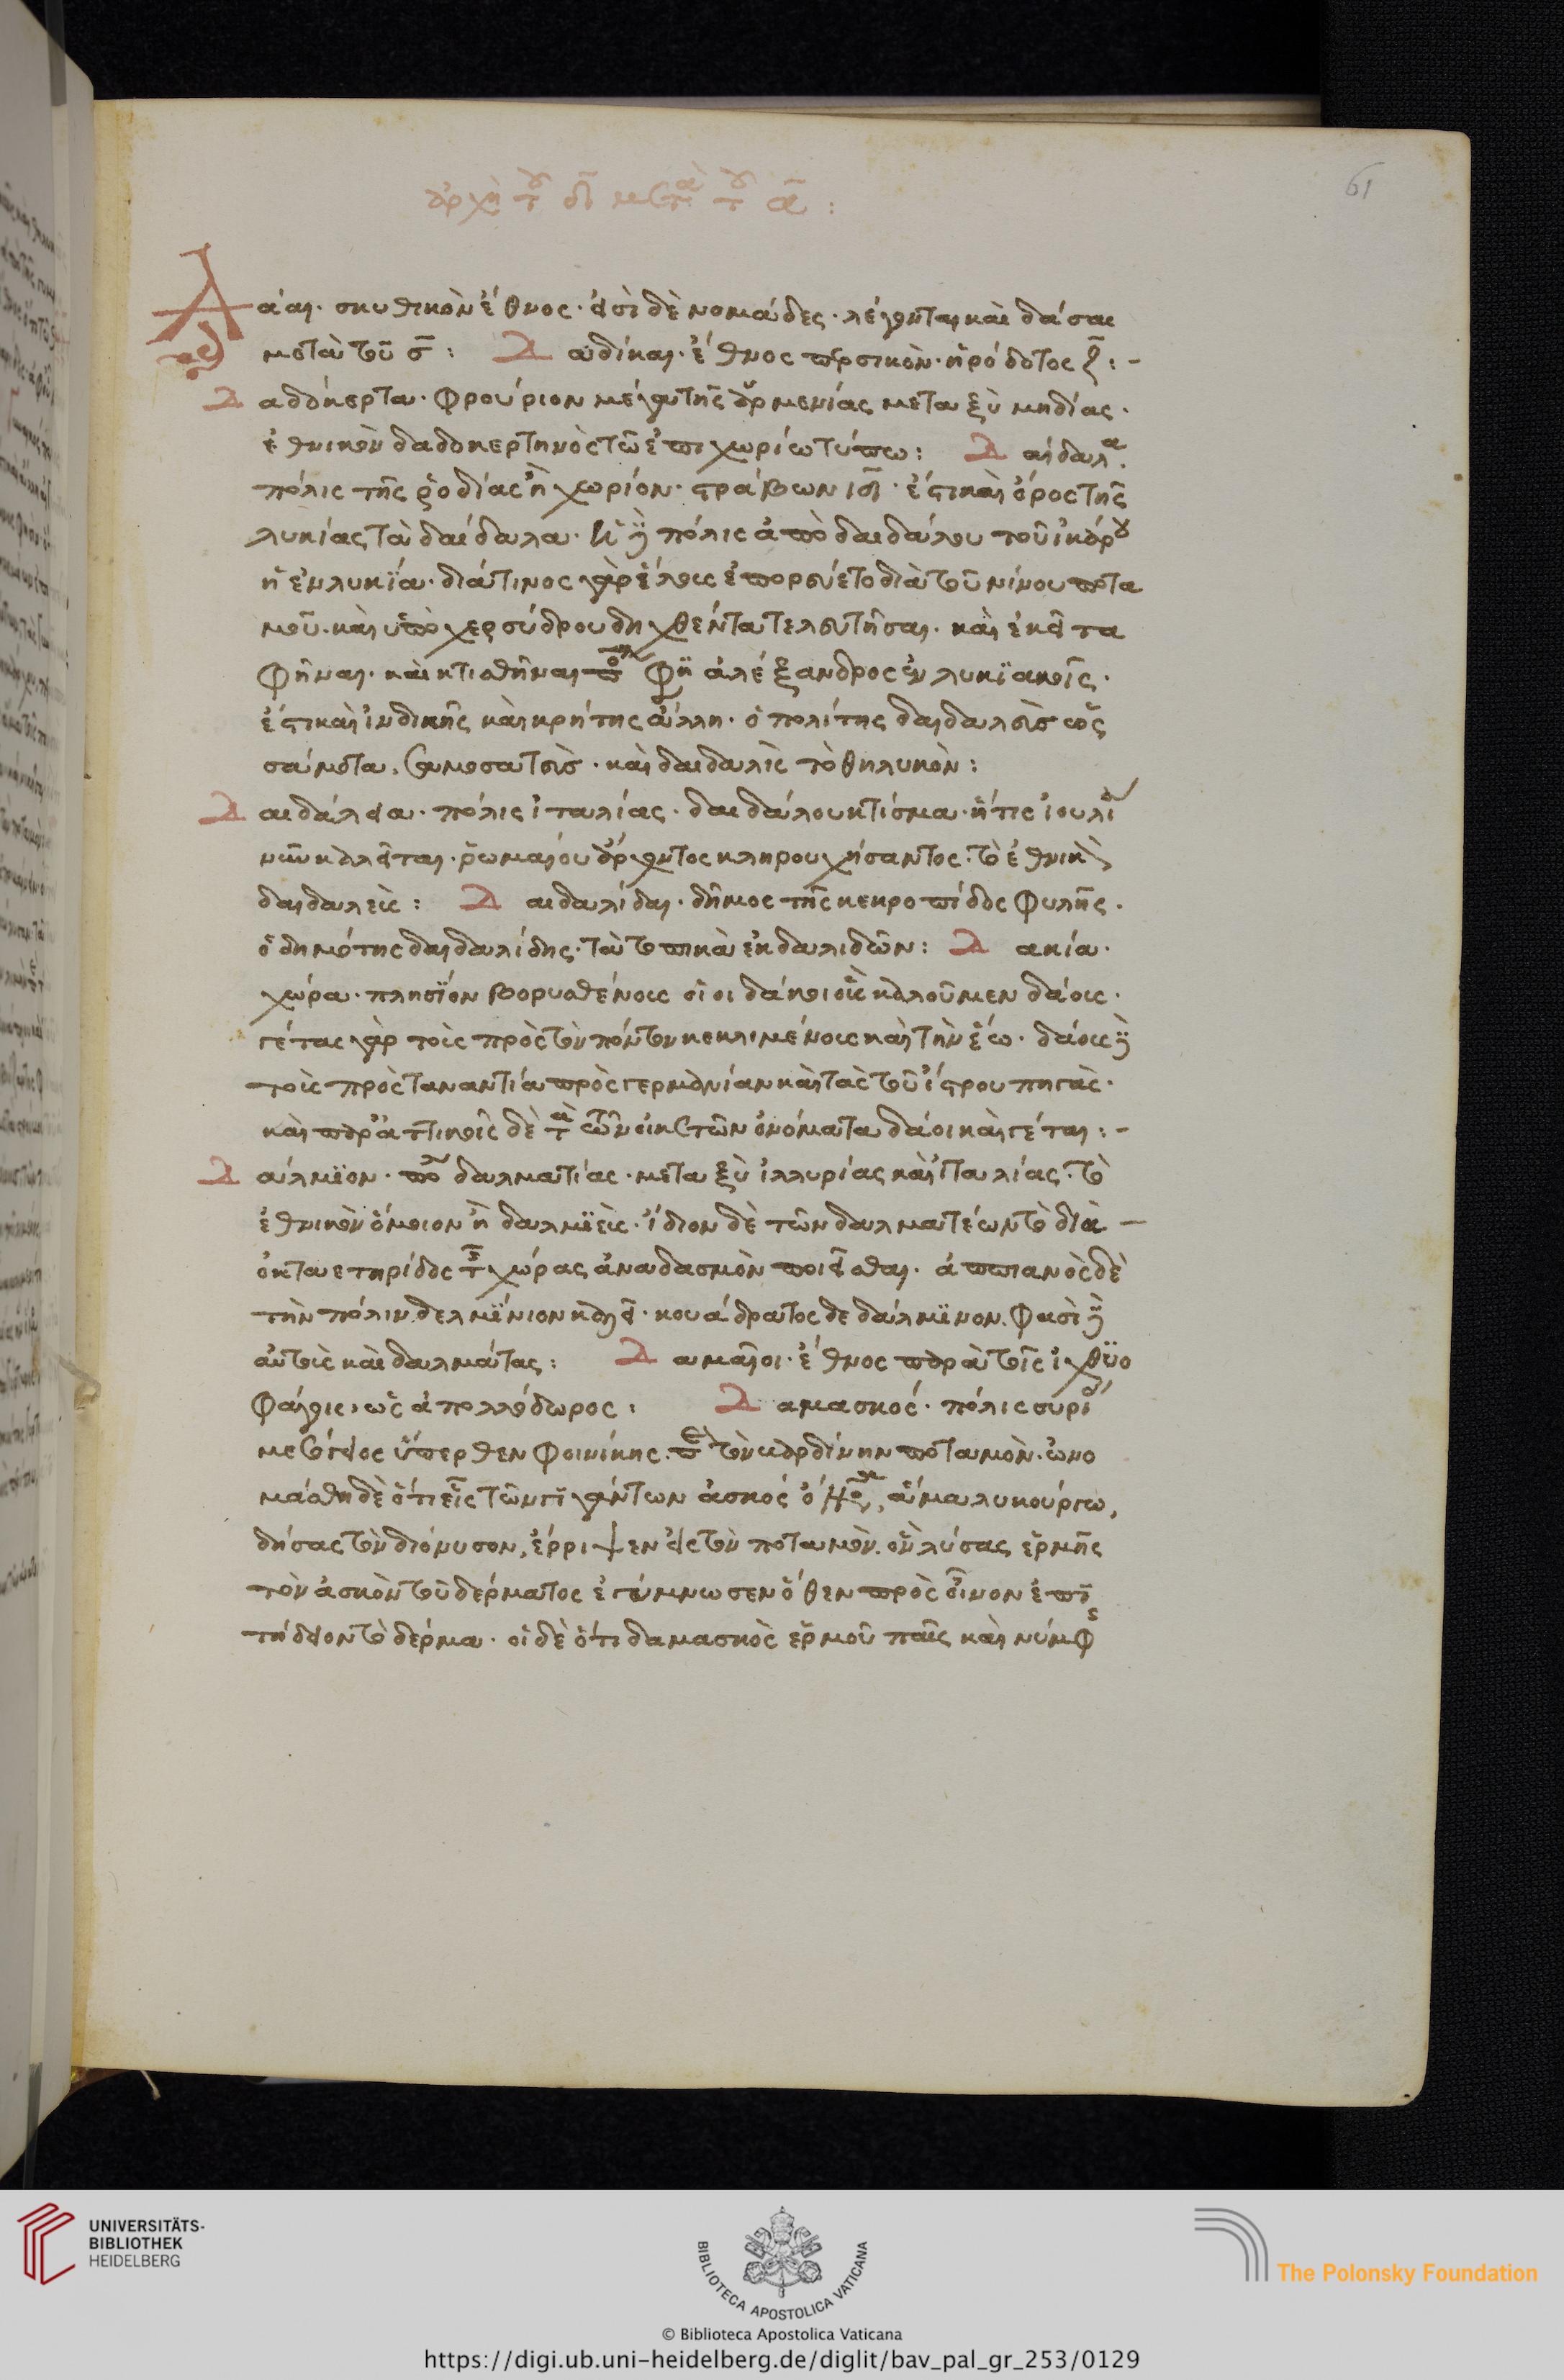 61
ἀρχὴ τοῦ δ̅ μετὰ τοῦ α̅ :
Δάαι· σκυθικὸν ἔθνος· εἰσὶ δὲ νομάδες· λέγονται καὶ δάσαι
μετὰ τοῦ σ̅ : Δαδίκαι· ἔθνος περσικὸν· ἡρόδοτος ζ̅ :-
Δαδόκερτα· φρούριον μέγα τῆς ἀρμενίας μεταξὺ μηδίας·
ἐθνικὸν δαδοκερτηνὸς τῶ ἐπιχωρίω τύπω : Δαίδαλα·
πόλις τῆς ῥοδίας ἢ χωρίον· στράβων ιδ̅· ἔστι καὶ ὄρος τῆς
λυκίας τὰ δαίδαλα· καὶ ἡ πόλις ἀπὸ δαιδάλου τοῦ ἰκάρου
ἡ ἐν λυκία· διά τινος γὰρ ἕλους ἐπορεύετο διὰ τοῦ νίνου ποτα
μοῦ· καὶ ὑπὸ χερσύδρου δηχθέντα τελευτῆσαι· καὶ ἐκεῖ τα
φῆναι· καὶ κτισθῆναι πόλιν φησὶ ἀλέξανδρος ἐν λυκιακοῖς·
ἔστι καὶ ἰνδικῆς καὶ κρήτης ἄλλη· ὁ πολίτης δαιδαλεὺς ὡς
σαμοσατα, σαμοσατεὺς· καὶ δαιδαλὶς τὸ θηλυκὸν :
Δαιδάλεια· πόλις ἰταλίας· δαιδάλου κτίσμα· ἥτις ἰουλία
νῦν καλεῖται· ῥωμαίου ἄρχοντος κληρουχήσαντος· τὸ ἐθνικὸν
δαιδαλεὶς : Δαιδαλίδαι· δῆμος τῆς κεκροπίδος φυλῆς·
ὁ δημότης δαιδαλίδης· τὰ τοπικὰ ἐκ δαλιδῶν : Δακία·
χώρα· πλησίον βορυσθένους οἱ οἱ δάκοι οὓς καλοῦμεν δάους·
γέτας γὰρ τοὺς πρὸς τὸν πόντον κεκλιμένους καὶ τὴν ἕω· δάους δὲ
τοὺς πρὸς ταναντία πρὸς γερμανίαν καὶ τὰς τοῦ ἴστρου πηγὰς·
καὶ παρ' ἀττικοῖς δὲ τὰ τῶν οἰκετῶν ὀνόματα δάοι καὶ γέται :-
Δάλμιον· πόλις δαλματίας· μεταξὺ ἰλλυρίας καὶ ἰταλίας· τὸ
ἐθνικὸν ὅμοιον ἢ δαλμιεὶς· ἴδιον δὲ τῶν δαλματέων τὸ διὰ
ὀκταετηρίδος τῆς χώρας ἀναδασμὸν ποιεῖσθαι· ἀππιανὸς δὲ
τὴν πόλιν δελμίνιον καλεῖ· κουάδρατος δε δάλμινον· φασὶ δὲ
αὐτοὺς καὶ δαλμάτας : Δαμαῖοι· ἔθνος παρὰ τοῖς ἰχθυο
φάγοις, ὡς ἀπολλόδωρος : Δαμασκός· πόλις συρίας
μεσόγειος ὕπερθεν φοινίκης· παρὰ τὸν κδρδίνην ποταμὸν· ὠνο
μάσθη δὲ ὅτι εἷς τῶν γιγάντων ἀσκός ὄνομα, ἅμα λυκούργω,
δήσας τὸν διόνυσον, ἔρριψεν εἰς τὸν ποταμὸν· ὃν λύσας ἑρμῆς
τὸν ἀσκὸν τοῦ δέρματος ἐγύμνωσεν ὅθεν πρὸς οἶνον ἐπι
τήδειον τὸ δέρμα· οἱ δὲ ὅτι δαμασκὸς ἑρμοῦ παῖς καὶ νύμφης
UNIVERSITÄTS-
BIBLIOTHEK
HEIDELBERG
BIBLIOTECA APOSTOLICA VATICANA
The Polonsky Foundation
© Biblioteca Apostolica Vaticana
https://digi.ub.uni-heidelberg.de/diglit/bav_pal_gr_253/0129